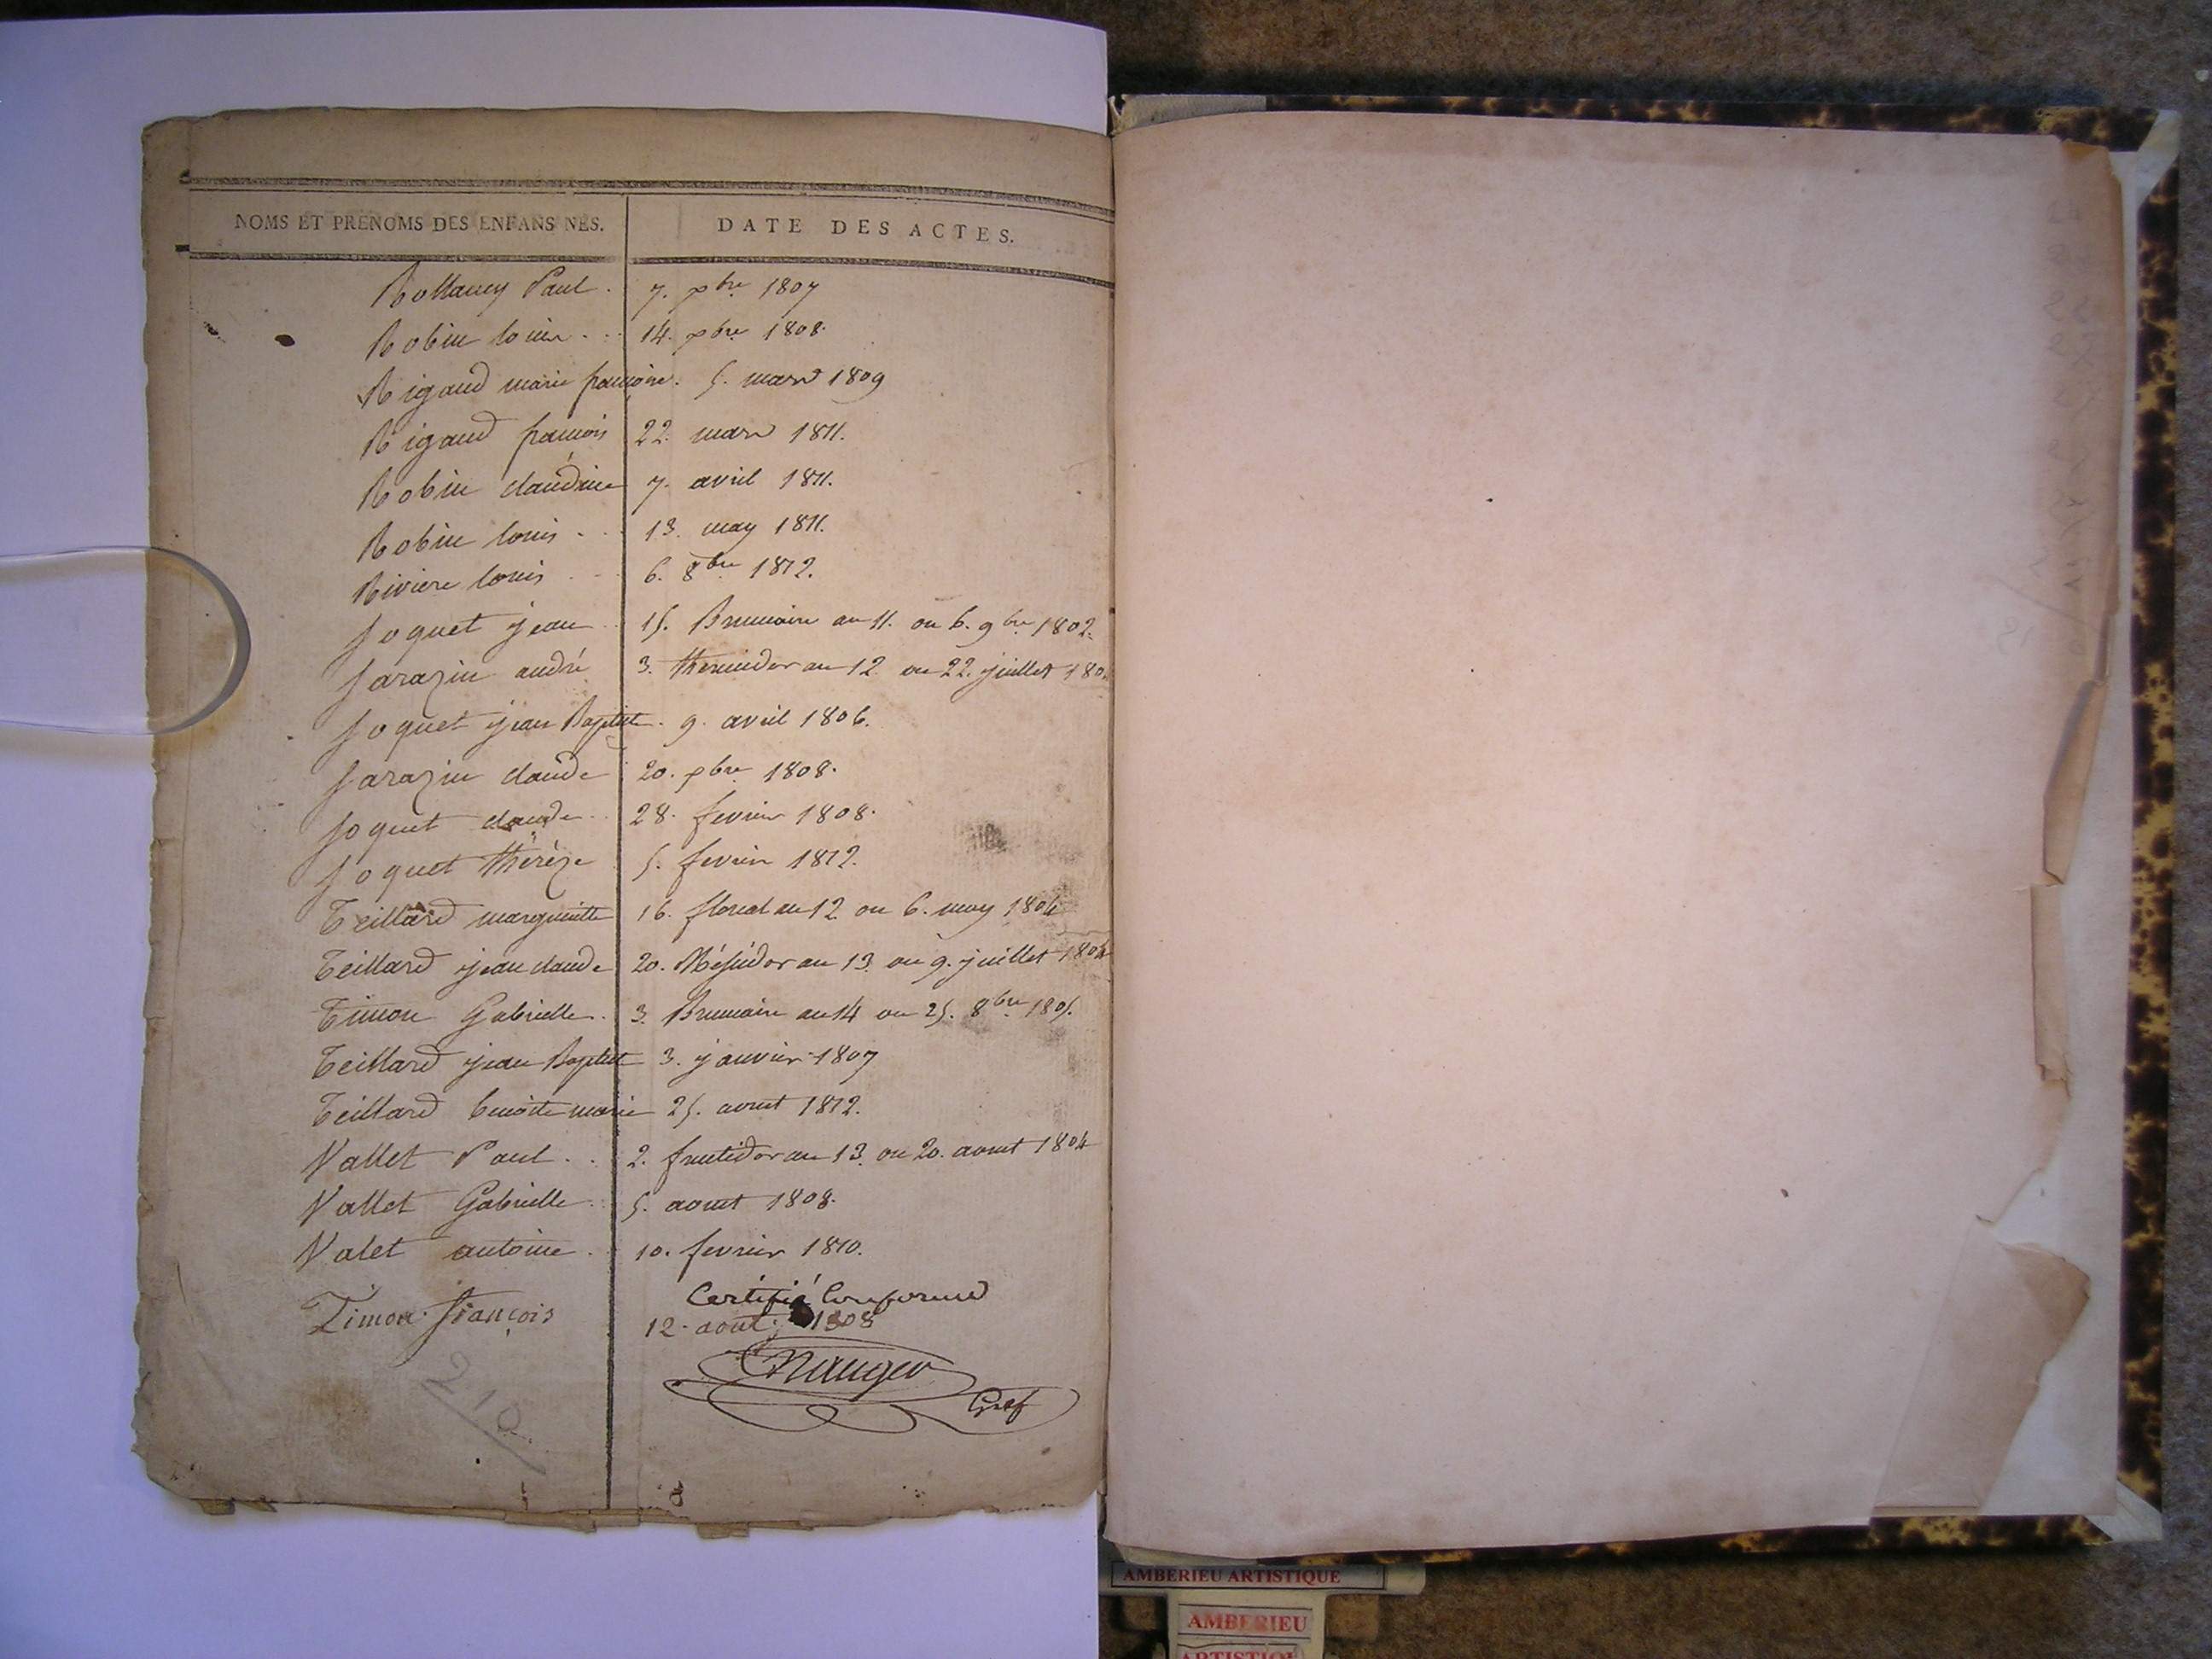 NOMS ET PRENOMS DES ENFANS NÉS. DATE DES ACTES.
Paul . 7. xbre 1807
Robin louis . . . 14. xbre 1808.
Rigaud marie françoise. 5. mars 1809
Rigaud françois 22. mars 1811.
Robin claudine 7. avril 1811.
Robin louis . . . 13. may 1811.
Riviere louis . . . 6. 8bre 1812.
Soquet jean . . 15. Brumaire an 11. ou 6. 9bre 1802.
Sarazin andré 3. thermidor an 12. ou 22. juillet 180
Soquet jean Baptiste . 9. avril 1806.
Sarazin claude 20. xbre 1808.
Soquet claude . . 28. fevrier 1808.
Soquet thérèze 5. fevrier 1812.
Teillard margueritte 16. floreal an 12 ou 6. may 1804
Teillard jean claude 20. Messidor an 13. ou 9. juillet 1804
Timon Gabrielle . 3. Brumaire an 14 ou 25. 8bre 1805.
Teillard jean Baptiste 3. janvier 1807
Teillard benoite marie 25. aout 1812.
Vallet Paul . . 2. fructidor an 13. ou 20. aout 1804
Vallet Gabrielle . 5. aout 1808.
Valet antoine . 10. fevrier 1810.
Certifié Conforme
Timon françois 12. aout. 1808
Gref
210
AMBERIEU ARTISTIQUE
AMBERIEU
ARTISTIQUE